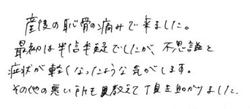 産後の恥骨の痛みで来ました。
最初は半信半疑でしたが、不思議と
症状が軽くなったような気がします。
その他の悪い所も教えて頂き助かりました。